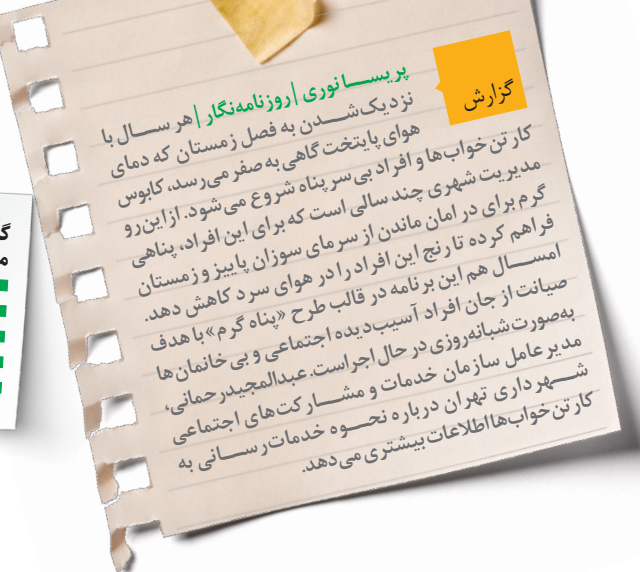 گزارش
پریسا نوری | روزنامه‌نگار | هر سال با
نزدیک‌شدن به فصل زمستان که دمای
هوای پایتخت گاهی به صفر می‌رسد، کابوس
کارتن‌خواب‌ها و افراد بی‌سرپناه شروع می‌شود. از این‌رو
مدیریت شهری چند سالی است که برای این افراد، پناهی
گرم برای در امان ماندن از سرمای سوزان پاییز و زمستان
فراهم کرده تا رنج این افراد را در هوای سرد کاهش دهد.
امسال هم این برنامه در قالب طرح «پناه گرم» با هدف
صیانت از جان افراد آسیب‌دیده اجتماعی و بی‌خانمان‌ها
به‌صورت شبانه‌روزی در حال اجراست. عبدالمجید رحمانی،
مدیرعامل سازمان خدمات و مشارکت‌های اجتماعی
شهرداری تهران درباره نحوه خدمات‌رسانی به
کارتن‌خواب‌ها اطلاعات بیشتری می‌دهد.